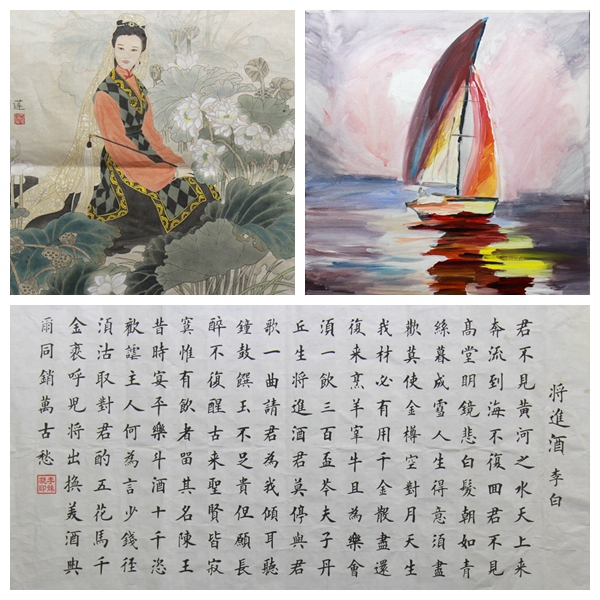 蓮
將進酒 李白
君不見黃河之水天上来
奔流到海不復囬君不見
髙堂明鏡悲白髮朝如青
絲暮成雪人生得意須盡
歡莫使金樽空對月天生
我材必有用千金散盡還
復来烹羊宰牛且為樂會
湏一飲三百盃岑夫子丹
丘生将進酒君莫停與君
歌一曲請君為我傾耳聽
鐘鼓饌玉不足貴但願長
醉不復醒古来聖賢皆寂
寞惟有飲者留其名陳王
昔時宴平樂斗酒十千恣
歡謔主人何為言少錢徑
湏沽取對君酌五花馬千
金裘呼児将出換美酒與
爾同銷萬古愁